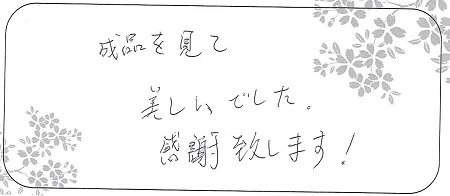 成品を見て
美しいでした。
感謝致します！